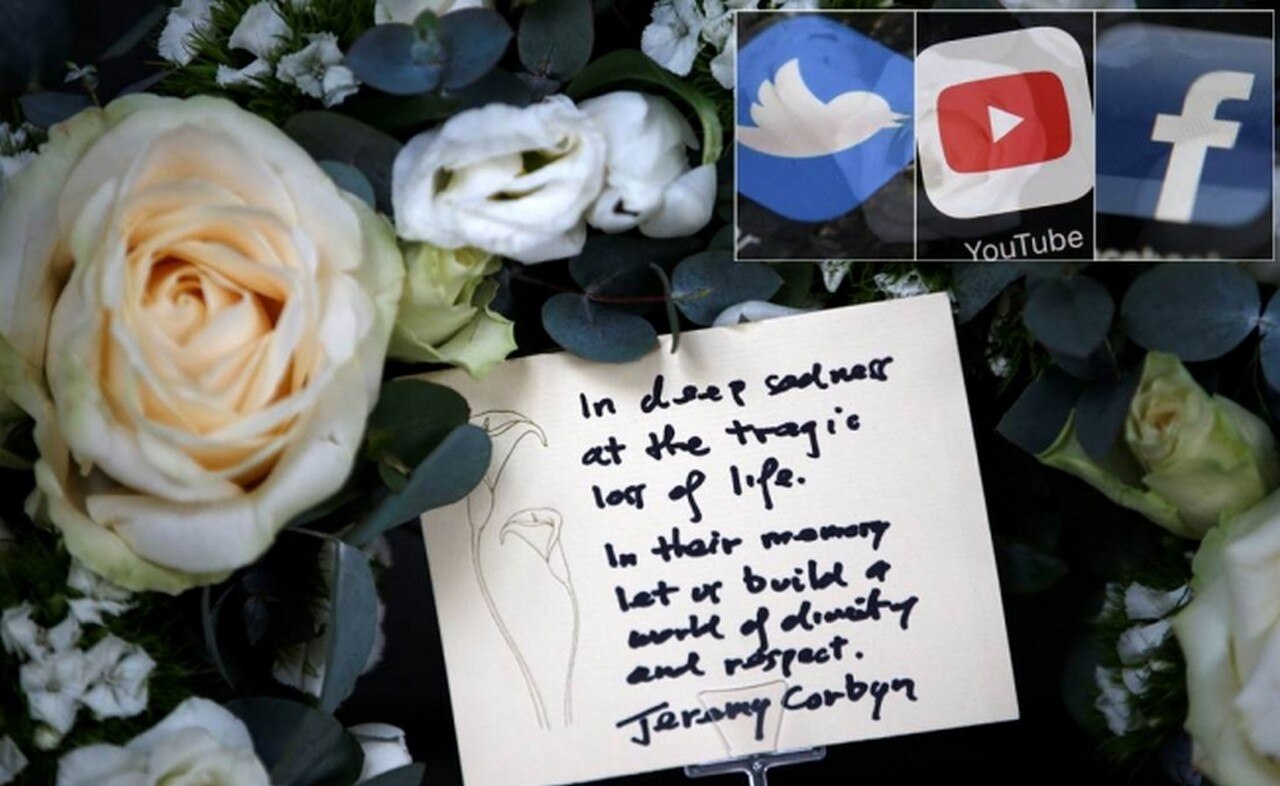 YouTube
In deep sadness
at the tragic
loss of life.
In their memory
let us build a
world of diversity
and respect.
Jeremy Corbyn